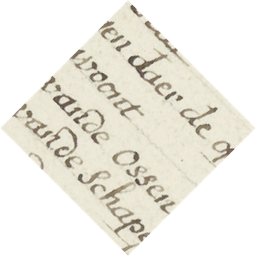 en daer de
woont
vande Ossen
vande Schape